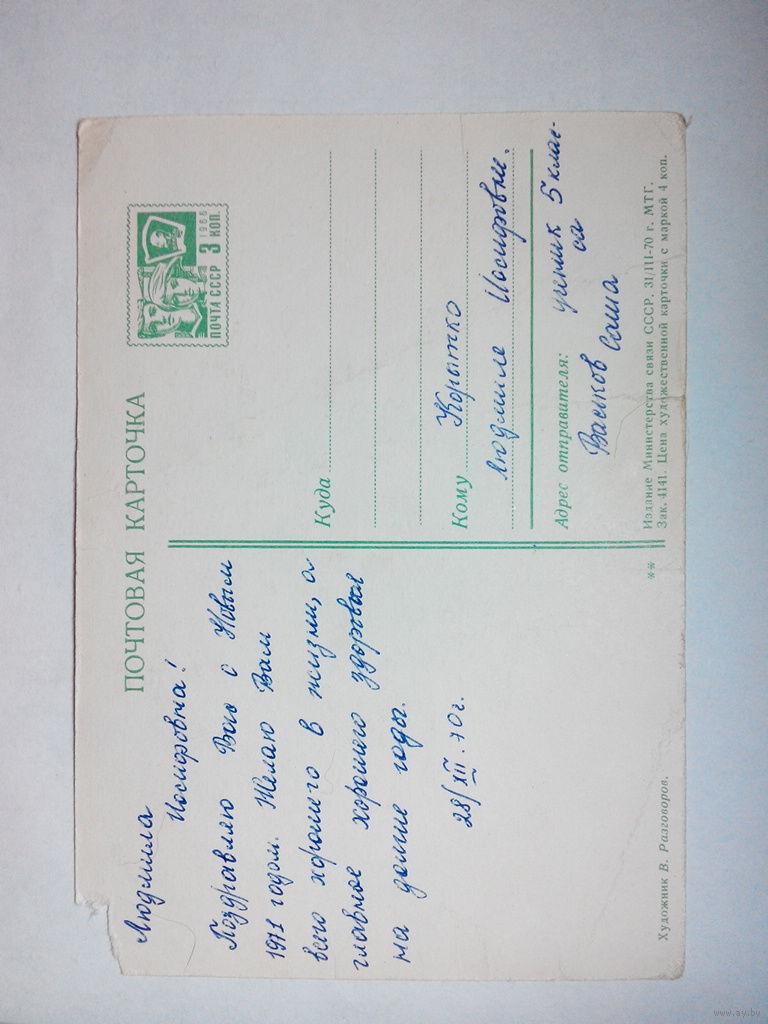 ПОЧТОВАЯ КАРТОЧКА
Людмила
Иосифовна!
Поздравляю Вас с Новым
1971 годом. Желаю Вам
всего хорошего в жизни, а
главное хорошего здоровья
на долгие годы.
28/XII.70г.
Художник В. Разговоров.
1966
ПОЧТА СССР 3 КОП.
Куда
Кому Корытко
Людмиле Иосифовне.
Адрес отправителя: ученик 5 клас-
са
Васьков Саша
** Издание Министерства связи СССР. 31/III-70 г. МТГ.
Зак. 4141. Цена художественной карточки с маркой 4 коп.
www.ay.by